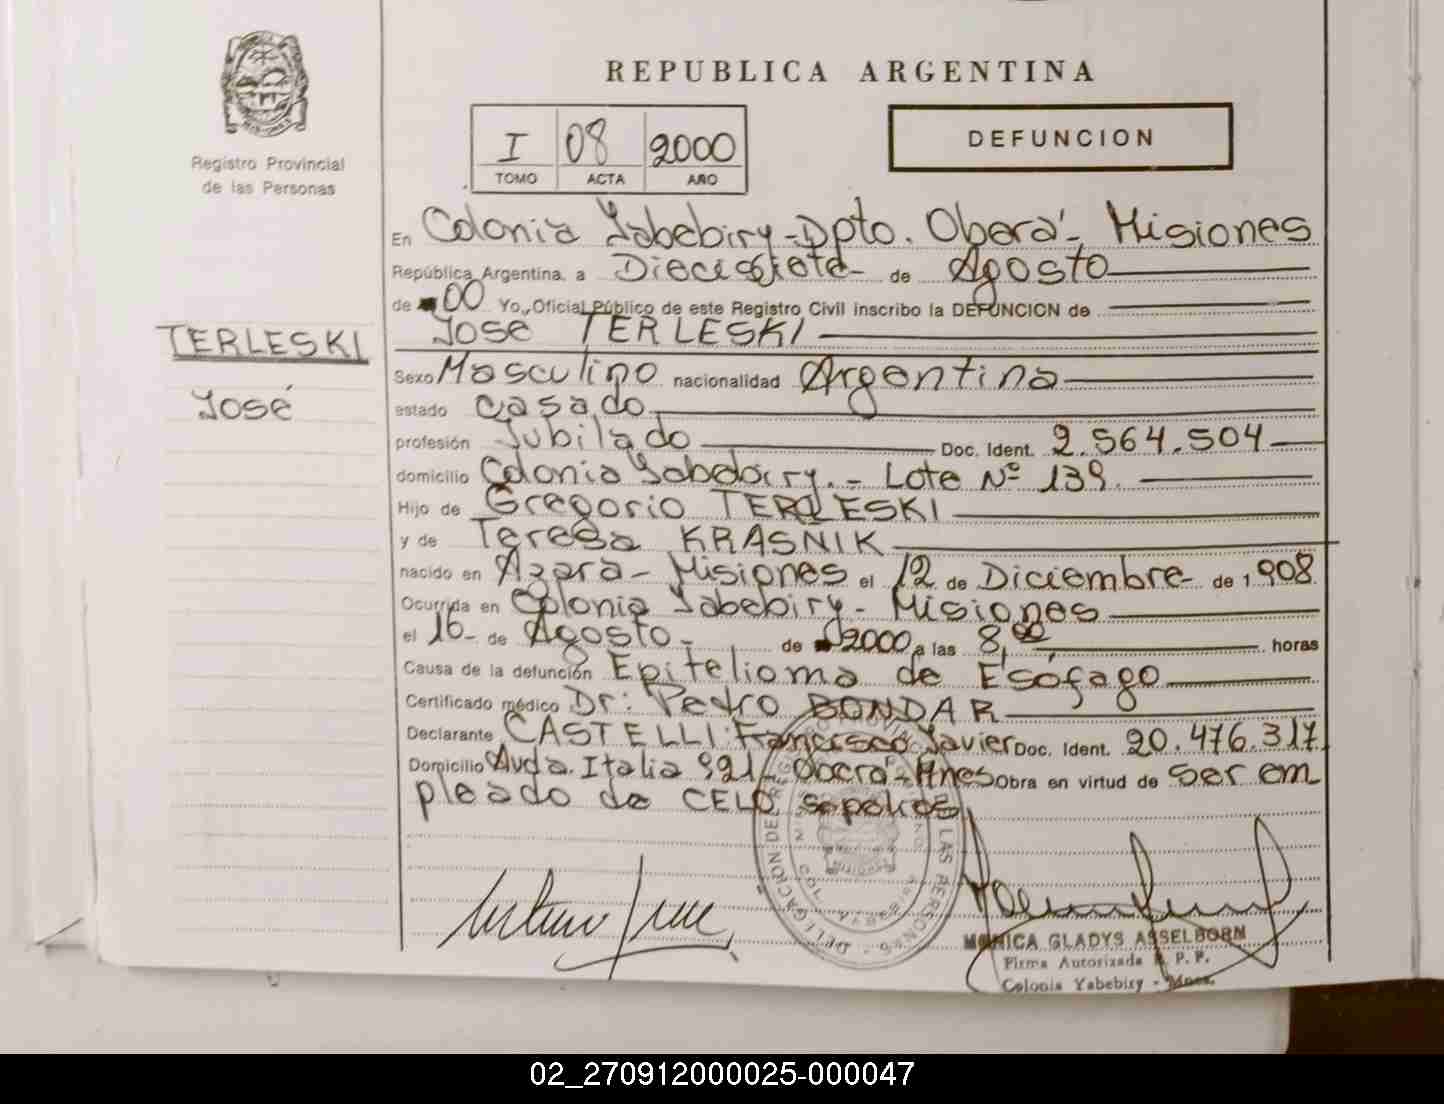 REPUBLICA ARGENTINA
I 08 2000
TOMO ACTA AÑO
DEFUNCION
Registro Provincial
de las Personas
TERLESKI
José
En Colonia Yabebiry - Dpto. Oberá - Misiones
República Argentina, a Diecisiete - de Agosto
de 00 Yo, Oficial Público de este Registro Civil inscribo la DEFUNCION de
José TERLESKI
Sexo Masculino nacionalidad Argentina
estado casado
profesión Jubilado Doc. Ident. 2.564.504
domicilio Colonia Yabebiry. - Lote Nº 139.
Hijo de Gregorio TERLESKI
y de Teresa KRASNIK
nacido en Azara - Misiones el 12 de Diciembre - de 1.908
Ocurrida en Colonia Yabebiry - Misiones
el 16 - de Agosto - de 2000 a las 8,00 horas
Causa de la defunción Epitelioma de Esófago
Certificado médico Dr: Pedro BONDAR
Declarante CASTELLI Francisco Javier Doc. Ident. 20.476.317
Domicilio Avda. Italia 921 - Oberá - Mnes Obra en virtud de ser em
pleado de CELO sepelios
DELEGACION DEL REGISTRO LAS PERSONAS
MONICA GLADYS ASSELBORN
Firma Autorizada R. P. P.
Colonia Yabebiry - Mnes.
02_270912000025-000047